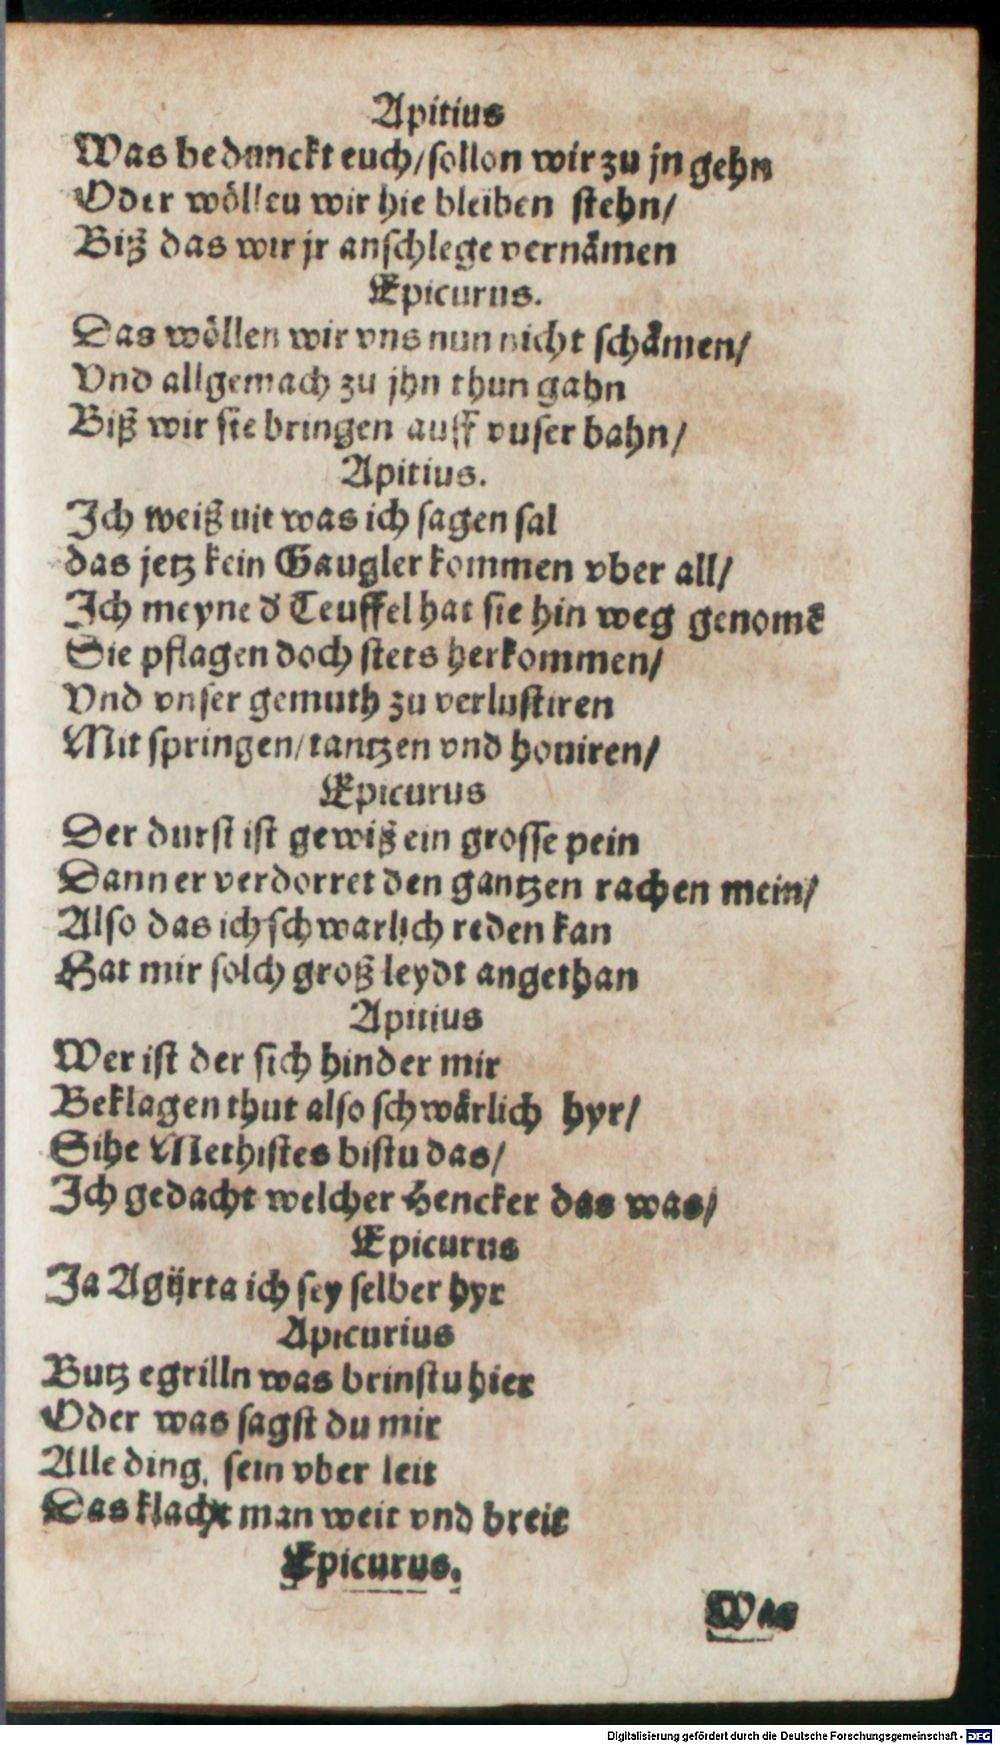 Apitius
Was bedunckt euch/sollon wir zu jn gehn
Oder wölleu wir hie bleiben stehn/
Biß das wir jr anschlege vernåmen
Epicurus.
Das wöllen wir vns nun nicht schåmen/
Vnd allgemach zu jhn thun gahn
Biß wir sie bringen auff vuser bahn/
Apitius.
Ich weiß uit was ich sagen sal
das jetz kein Gaugler kommen vber all/
Ich meyne d' Teuffel hat sie hin weg genomē
Sie pflagen doch stets herkommen/
Vnd vnser gemuth zu verlustiren
Mit springen/tantzen vnd houiren/
Epicurus
Der durst ist gewiß ein grosse pein
Dann er verdorret den gantzen rachen mein/
Also das ich schwarlich reden kan
Hat mir solch groß leydt angethan
Apitius
Wer ist der sich hinder mir
Beklagen thut also schwårlich hyr/
Sihe Methistes bistu das/
Ich gedacht welcher Hencker das was/
Epicurus
Ja Agÿrta ich sey selber hyr
Apicurius
Butz egrilln was brinstu hier
Oder was sagst du mir
Alle ding, sein vber leit
Das klacht man weit vnd breit
Epicurus.
Was
Digitalisierung gefördert durch die Deutsche Forschungsgemeinschaft - DFG